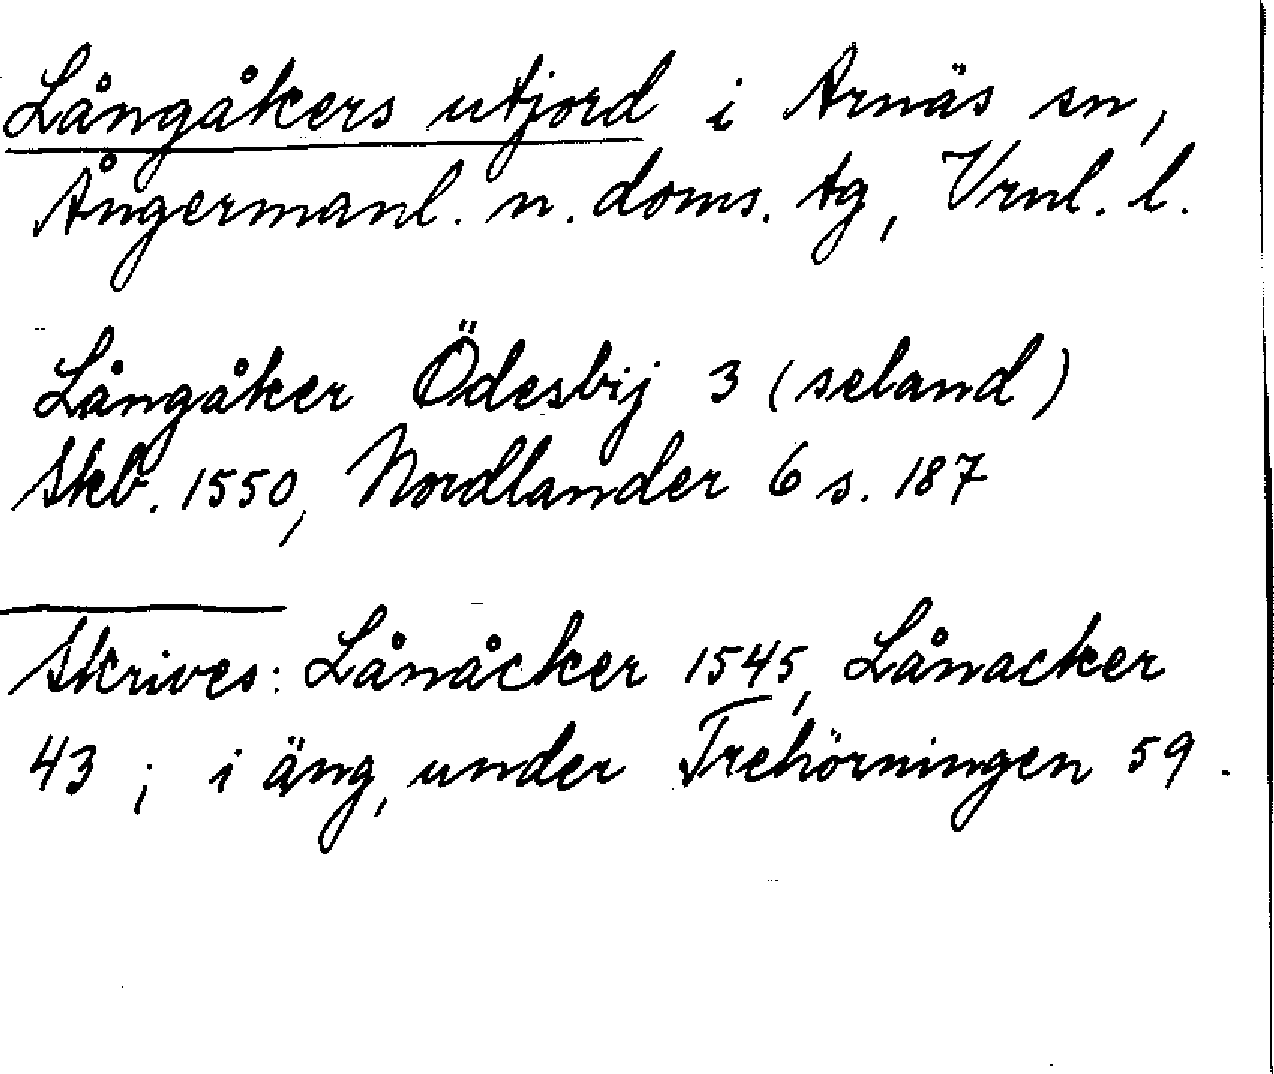 Långåkers utjord i Arnäs sn,
Ångermanl. n. doms. tg, Vrnl. l.
Långåker Ödesbij 3 (seland)
Skb. 1550, Nordlander 6 s. 187
Skrives: Lånåcker 1545, Lånacker
43 ; i äng, under Trehörningen 59.